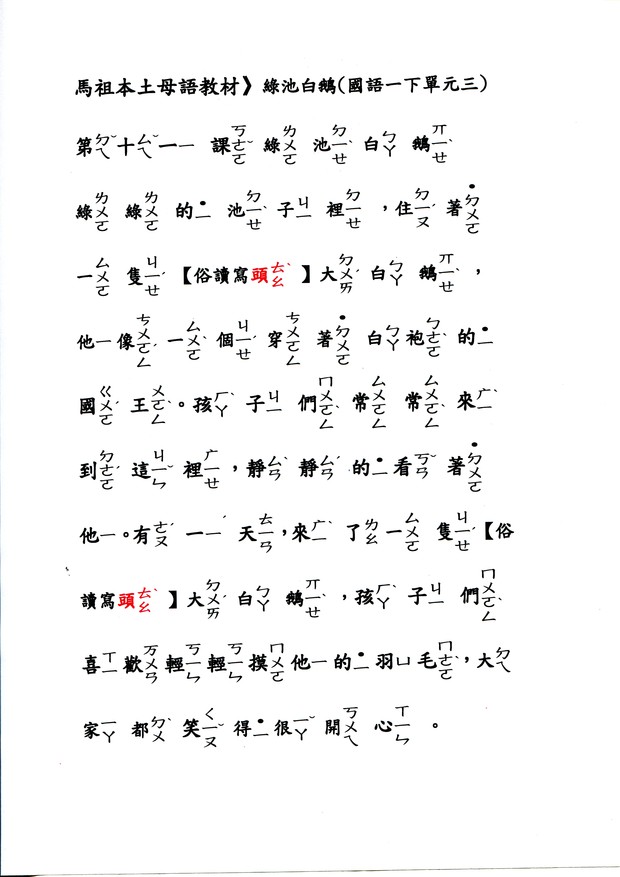 馬祖本土母語教材》綠池白鵝(國語一下單元三)
第ㄉㄟˇ十ㄙㄟˋ一ㄧ 課ㄎㄜㄛ 綠ㄌㄨㄛ 池ㄉㄧㄝ 白ㄅㄚˋ 鵝ㄫㄧㄝˋ
綠ㄌㄨㄛ 綠ㄌㄨㄛ 的˙ㄧ 池ㄉㄧㄝˋ 子ㄐㄧ 裡ㄉㄧㄝ ,住ㄉㄧㄡˋ 著˙ㄉㄨㄛ
一ㄙㄨㄛ 隻ㄐㄧㄝˊ【俗讀寫頭ㄊㄠˋ】大ㄉㄨㄞˊ 白ㄅㄚˋ 鵝ㄫㄧㄝˋ ,
他ㄧ像ㄘㄨㄛㄥˊ 一ㄙㄨㄛ 個ㄐㄧㄝˊ 穿ㄘㄨㄛㄥˊ 著˙ㄉㄨㄛ 白ㄅㄚˋ袍ㄅㄜㄛˋ 的˙ㄧ
國ㄍㄨㄛˊ 王ㄨㄛㄥˋ。孩ㄏㄚˊ 子ㄐㄧ 們ㄇㄨㄛㄥˋ 常ㄙㄨㄛㄥˋ 常ㄙㄨㄛㄥˋ 來ㄏㄧˋ
到ㄉㄜㄛˊ 這ㄐㄧㄣˇ 裡ㄏㄧㄝ ,靜ㄙㄢˊ 靜ㄙㄢˊ 的˙ㄧ看ㄎㄢˇ 著˙ㄉㄨㄛ
他ㄧ。有ㄜㄡˊ 一ㄧˊ 天ㄊㄧㄢ,來ㄏㄧˋ 了ㄌㄠ一ㄙㄨㄛ 隻ㄐㄧㄝˊ【俗
讀寫頭ㄊㄠˋ】大ㄉㄨㄞˊ 白ㄅㄚˋ 鵝ㄫㄧㄝˋ ,孩ㄏㄚˊ 子ㄐㄧ 們ㄇㄨㄛㄥˋ
喜ㄒㄧ歡ㄎㄨㄢ輕ㄎㄧㄣ輕ㄎㄧㄣ摸ㄇㄨㄛ他ㄧ的˙ㄧ羽ㄩ毛ㄇㄜㄛˋ,大ㄉㄟ
家ㄧㄚ 都ㄉㄨˋ 笑ㄑㄧㄡˇ 得˙ㄧ很ㄧㄚˇ 開ㄎㄨㄟ 心ㄒㄧㄣ 。